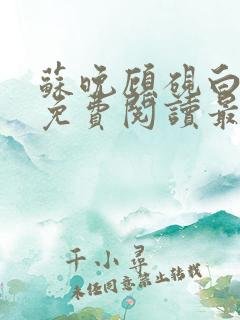 蘇晚顧硯白
免費閱讀最
千小尋
未經同意禁止转载